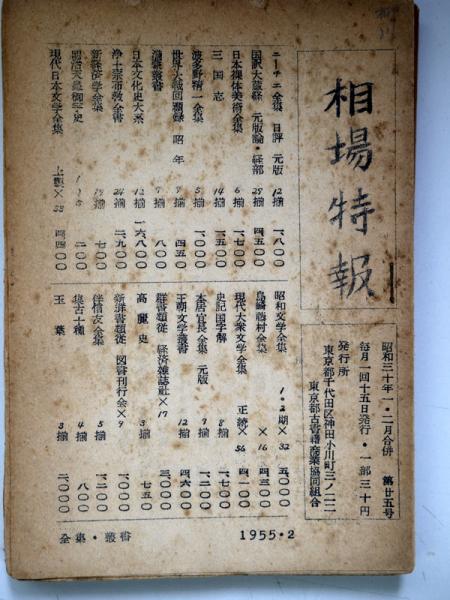 相場特報
昭和三十年一・二月合併　第廿五号
毎月一回十五日発行・一部三十円
発行所
東京都千代田区神田小川町三ノ二二
東京都古書籍商業協同組合
ニーチェ全集 日評 元版 12揃 一、八〇〇
国訳大蔵経 元版論・経部 28揃 四、五〇〇
日本裸体美術全集 6揃 一、七〇〇
三国志 14揃 一、五〇〇
波多野精一全集 5揃 一、〇〇〇
世界大戦回顧録 昭年 9揃 四五〇
叢書 7揃 八〇〇
日本文化史大系 12揃 一六、八〇〇
浄土宗布教全書 24揃 二、九〇〇
新経済学全集 揃 七〇〇
明治天皇御宇史 二〇〇
現代日本文学全集 上製×55 四、四〇〇
昭和文学全集 1・2期×32 五、〇〇〇
島崎藤村全集 ×16 四、三〇〇
現代大衆文学全集 正続×56 四、一〇〇
史記国字解 8揃 一、七〇〇
本居宣長全集 元版 7揃 一、二〇〇
王朝文学叢書 12揃 四、六〇〇
群書類従 経済雑誌社×17 三、〇〇〇
高麗史 3揃 七五〇
新群書類従 図書刊行会×9 一、〇〇〇
伴信友全集 5揃 二、〇〇〇
集古十種 4揃 八〇〇
玉葉 3揃 二、〇〇〇
全集・叢書
1955・2